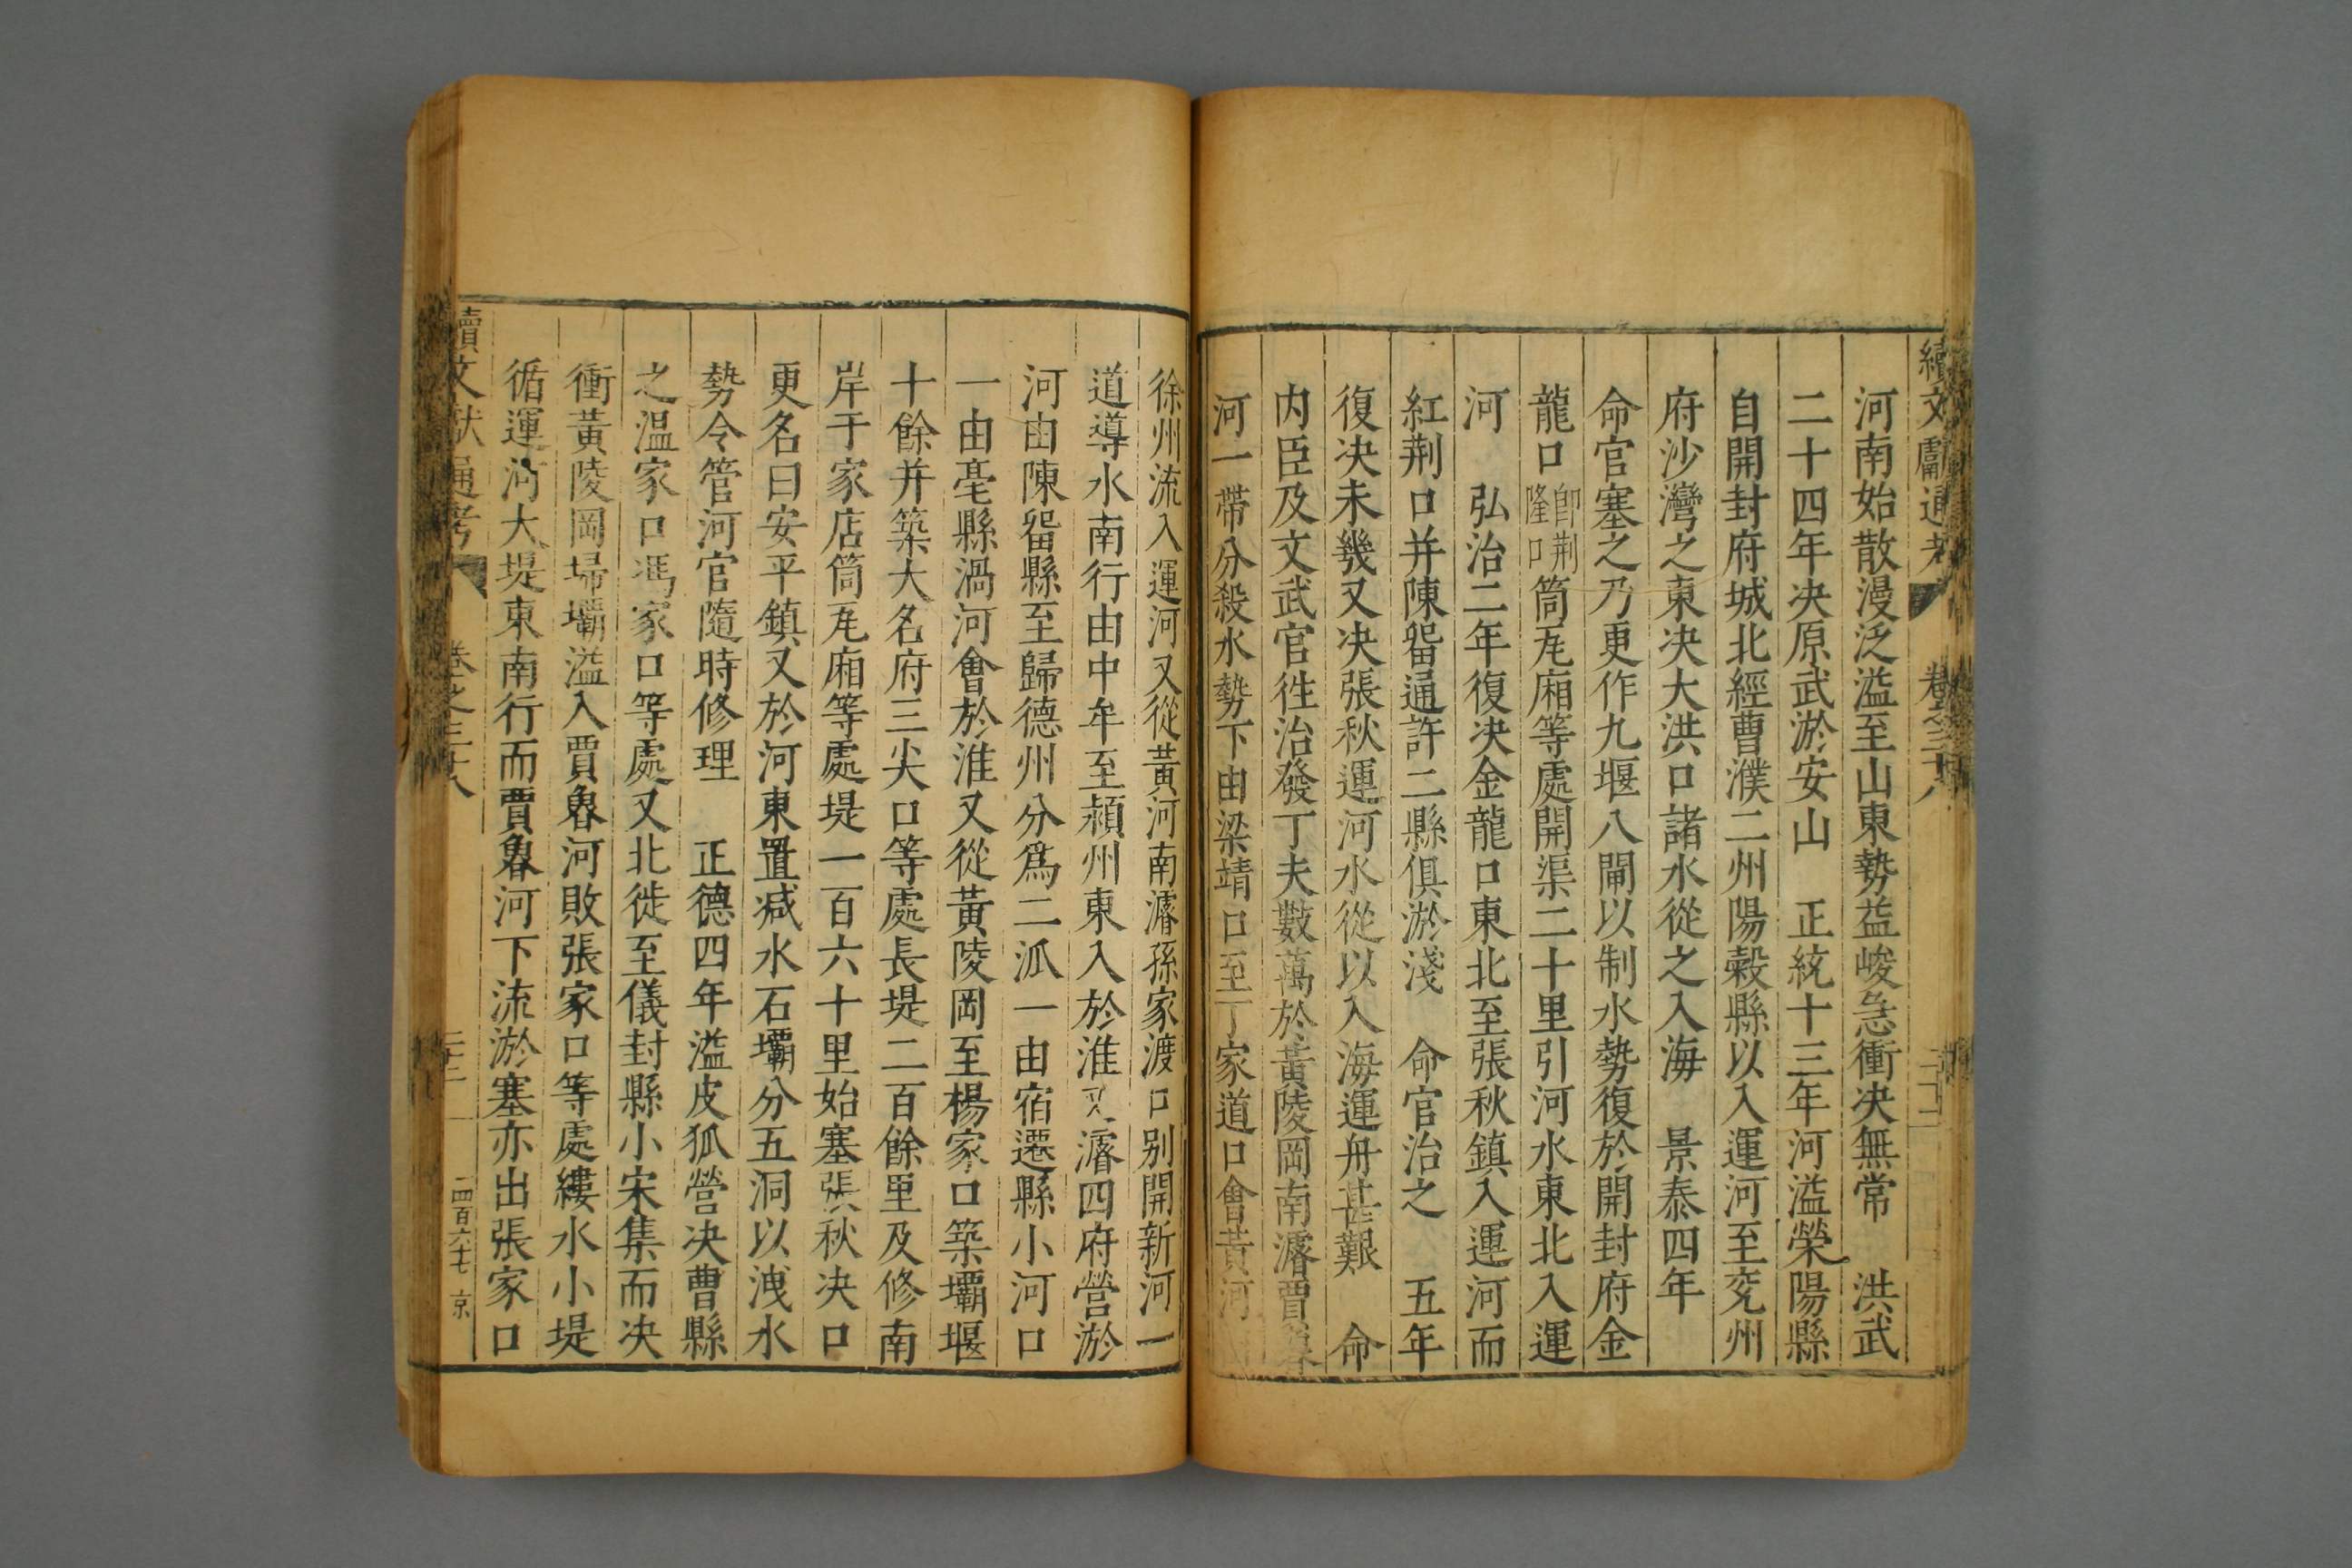 續文獻通考 卷之三十八
河南始散漫泛溢至山東勢益峻急衝决無常 洪武
二十四年决原武淤安山 正統十三年河溢滎陽縣
自開封府城北經曹濮二州陽糓縣以入運河至兖州
府沙灣之東决大洪口諸水從之入海 景泰四年
命官塞之乃更作九堰八閘以制水勢復於開封府金
龍口卽荆隆口筒瓦廂等處開渠二十里引河水東北入運
河 弘治二年復决金龍口東北至張秋鎮入運河而
紅荆口并陳畱通許二縣俱淤淺 命官治之 五年
復决未幾又决張秋運河水從以入海運舟甚艱 命
内臣及文武官徃治發丁夫數萬於黃陵岡南濬賈魯
河一帶分殺水勢下由梁靖口至丁家道口會黃河
徐州流入運河又從黃河南濬孫家渡口别開新河一
道導水南行由中牟至潁州東入於淮又濬四府營淤
河由陳畱縣至歸德州分爲二泒一由宿遷縣小河口
一由亳縣渦河會於淮又從黃陵岡至楊家口築壩堰
十餘并築大名府三尖口等處長堤二百餘里及修南
岸于家店筒瓦廂等處堤一百六十里始塞張秋决口
更名曰安平鎮又於河東置减水石壩分五洞以洩水
勢令管河官隨時修理 正德四年溢皮狐營决曹縣
之温家口馮家口等處又北徙至儀封縣小宋集而决
衝黃陵岡埽壩溢入賈魯河敗張家口等處縷水小堤
循運河大堤東南行而賈魯河下流淤塞亦出張家口
續文獻通考 卷之三十八 四百六七 京